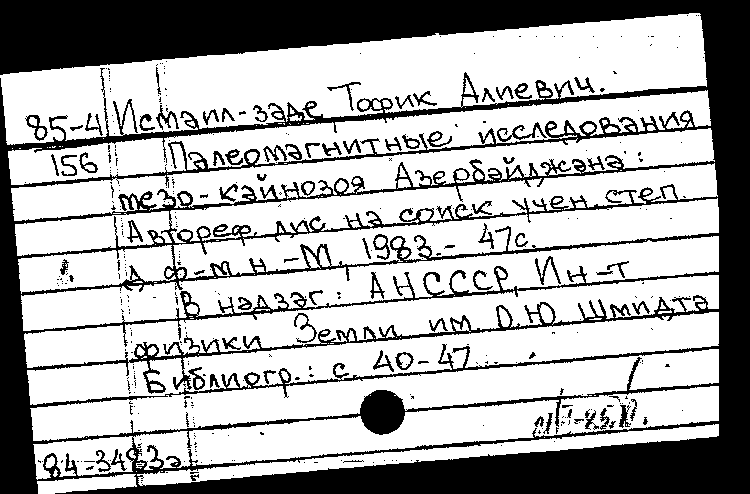 85-4 Исмаил-заде Тофик Алиевич.
156 Палеомагнитные исследования
мезо-кайнозоя Азербайджана:
Автореф. дис. на соиск. учен. степ.
д. ф-м.н. -М., 1983.- 47с.
В надзаг.: АНСССР, Ин-т
физики Земли им. О.Ю. Шмидта
Библиогр.: с. 40-47...
84-3483а